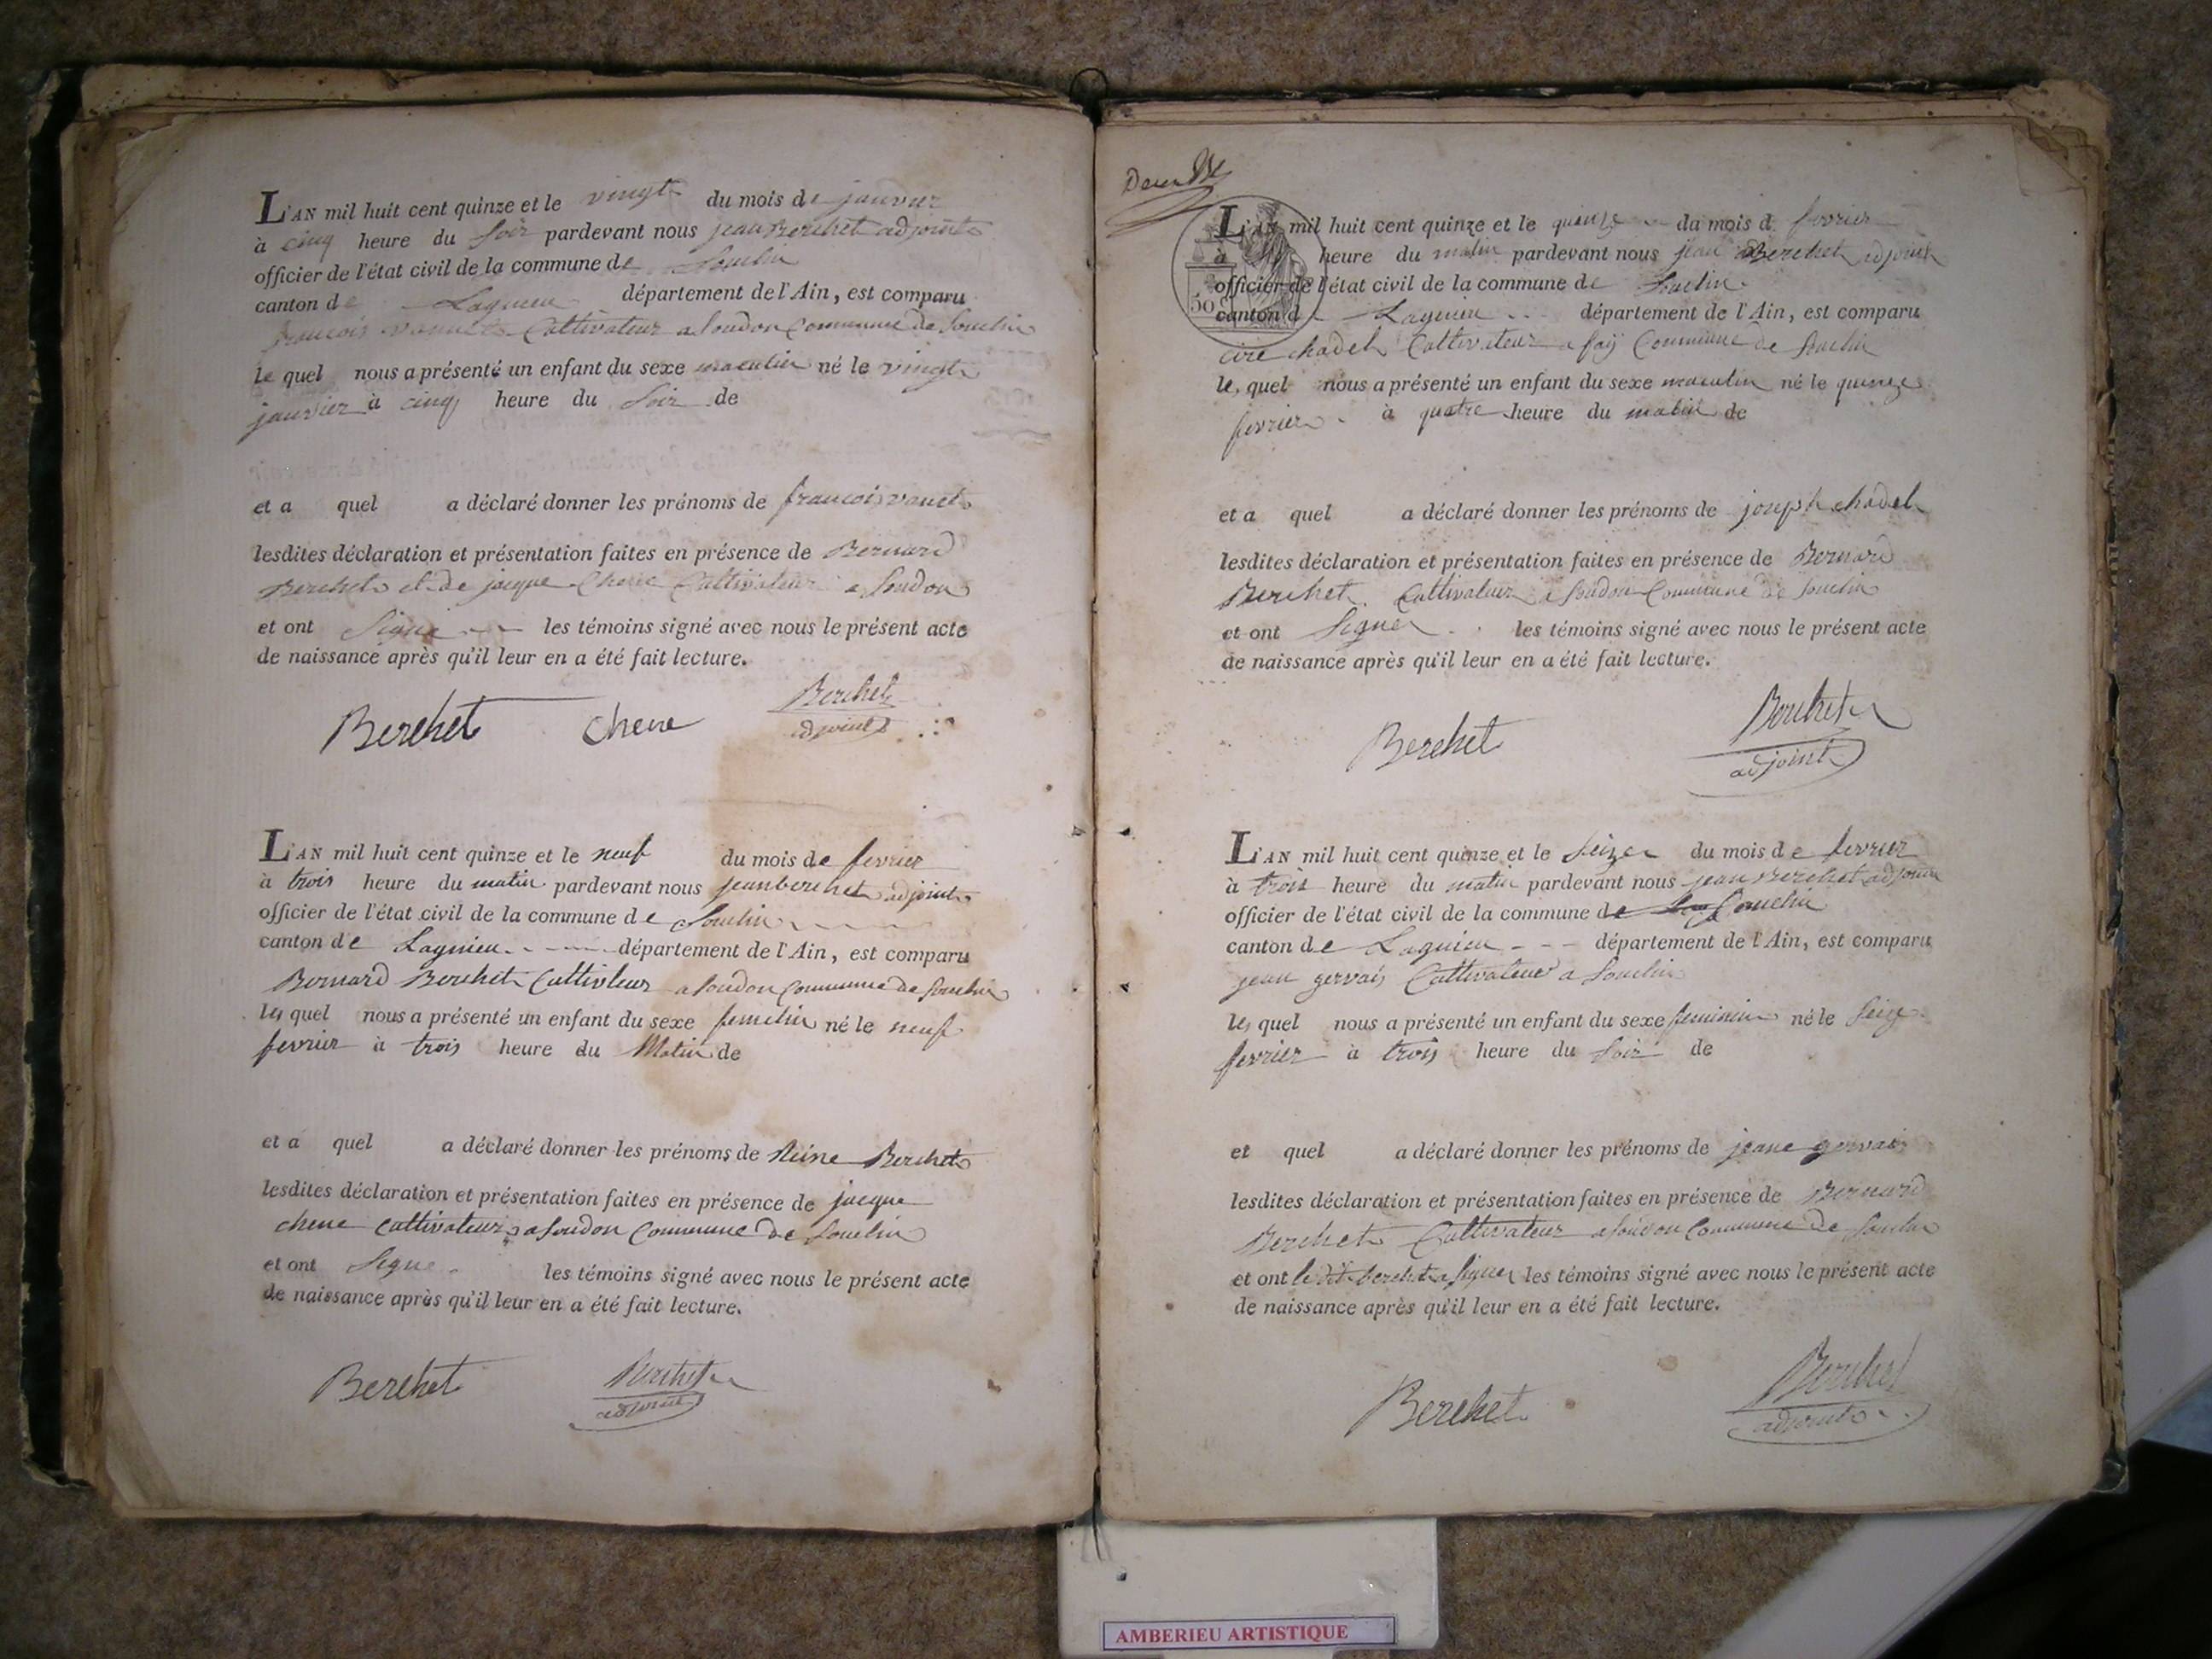 L'AN mil huit cent quinze et le vingt du mois de janvier
à cinq heure du soir pardevant nous jean Berchet adjoint
officier de l'état civil de la commune de Souclin
canton de Lagnieu département de l'Ain, est comparu
francois vanet Cultivateur a Soudon Commune de Souclin
le quel nous a présenté un enfant du sexe masculin né le vingt
janvier à cinq heure du Soir de
et a quel a déclaré donner les prénoms de francois vanet
lesdites déclaration et présentation faites en présence de Bernard
Berchet et de jacque Chene Cultivateur a Soudon
et ont Signe les témoins signé avec nous le présent acte
de naissance après qu'il leur en a été fait lecture.
Berchet chene Berchet
adjoint
L'AN mil huit cent quinze et le neuf du mois de fevrier
à trois heure du matin pardevant nous jean berchet adjoint
officier de l'état civil de la commune de Souclin
canton de Lagnieu département de l'Ain, est comparu
Bernard Berchet Cultivteur a Soudon Commune de Souclin
le quel nous a présenté un enfant du sexe femelin né le neuf
fevrier à trois heure du Matin de
et a quel a déclaré donner les prénoms de Reine Berchet
lesdites déclaration et présentation faites en présence de jacque
chene cultivateur a Soudon Commune de Souclin
et ont Signe les témoins signé avec nous le présent acte
de naissance après qu'il leur en a été fait lecture.
Berchet Berchet
adjoint
50 c
L'AN mil huit cent quinze et le quinze du mois d fevrier
à heure du matin pardevant nous jean Berchet adjoint
officier de l'état civil de la commune de Souclin
canton d Lagnieu département de l'Ain, est comparu
cire chadel Cultivateur a fay Commune de Souclin
le quel nous a présenté un enfant du sexe masculin né le quinze
fevrier à quatre heure du matin de
et a quel a déclaré donner les prénoms de joseph chadel
lesdites déclaration et présentation faites en présence de Bernard
Berchet Cultivateur a Soudon Commune de Souclin
et ont Signer les témoins signé avec nous le présent acte
de naissance après qu'il leur en a été fait lecture.
Berchet Berchet
adjoint
L'AN mil huit cent quinze et le Seize du mois de fevrier
à trois heure du matin pardevant nous jean Berchet adjoint
officier de l'état civil de la commune de Souclin
canton de Lagnieu département de l'Ain, est comparu
jean gervais Cultivateur a Souclin
le quel nous a présenté un enfant du sexe feminin né le Seize
fevrier à trois heure du Soir de
et quel a déclaré donner les prénoms de jeane gervais
lesdites déclaration et présentation faites en présence de Bernard
Berchet Cultivateur a Soudon Commune de Souclin
et ont le dit berchet a Signer les témoins signé avec nous le présent acte
de naissance après qu'il leur en a été fait lecture.
Berchet Berchet
adjoint
AMBERIEU ARTISTIQUE